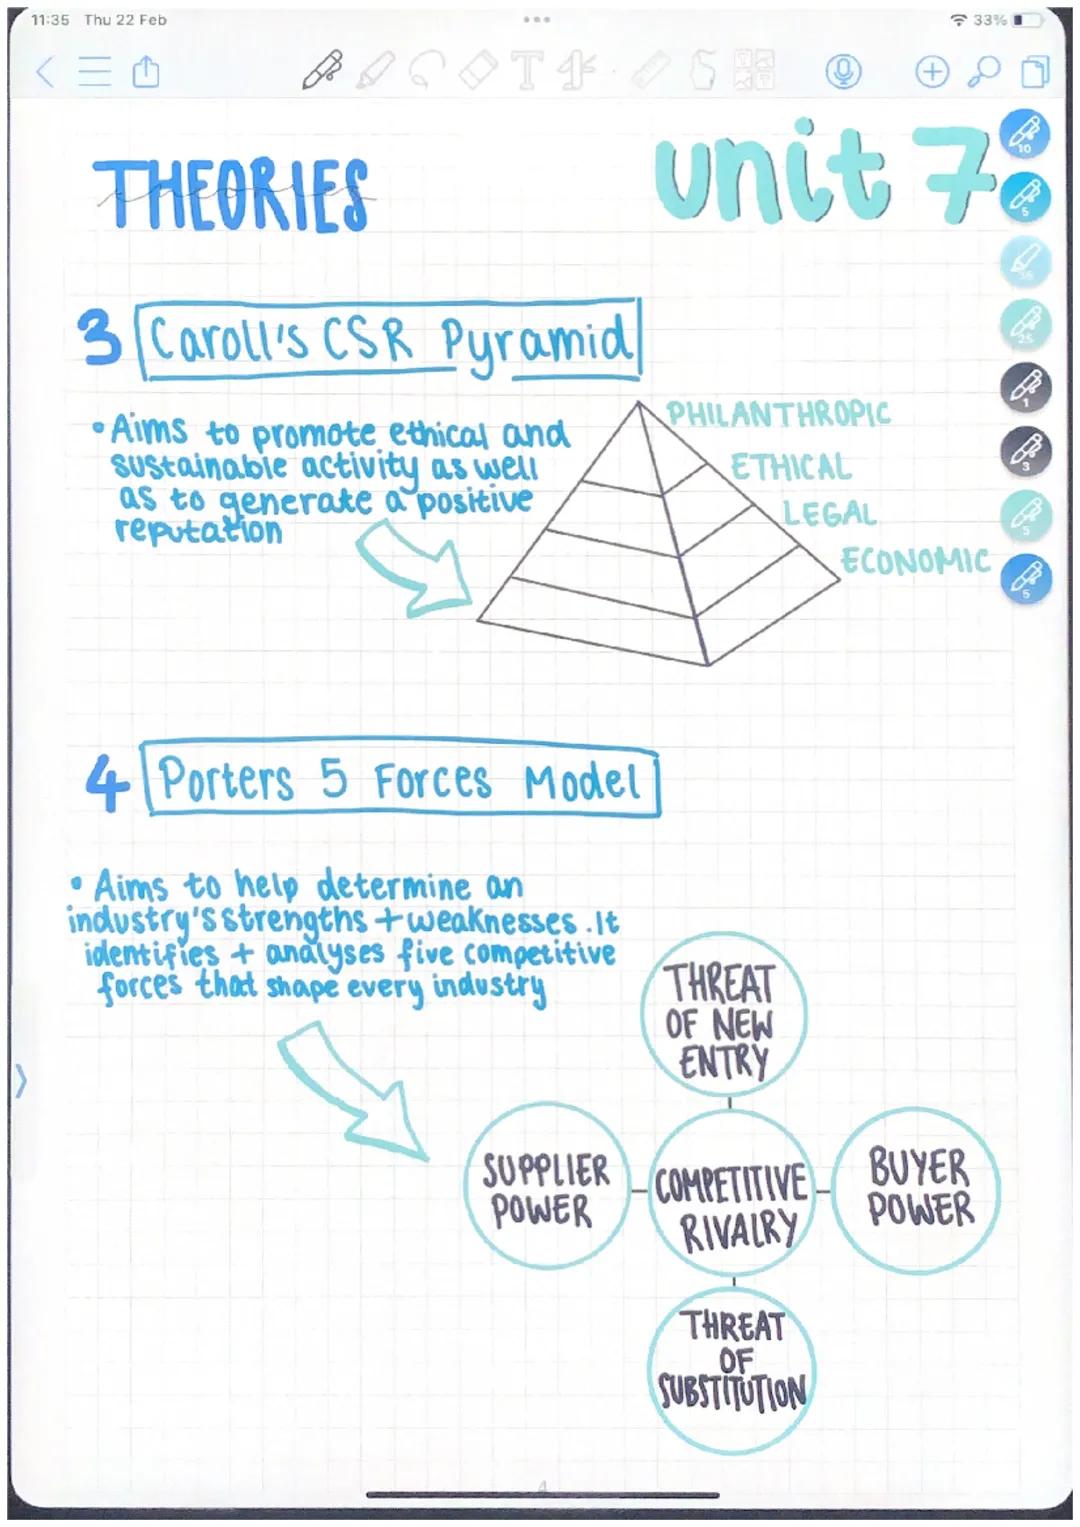 11:35 Thu 22 Feb
33%
THEORIES
theories
unit 7
10
5
25
1
3
5
5
3 Caroll's CSR Pyramid
•Aims to promote ethical and
sustainable activity as well
as to generate a positive
reputation
PHILANTHROPIC
ETHICAL
LEGAL
ECONOMIC
4 Porters 5 Forces Model
• Aims to help determine an
industry's strengths + weaknesses. It
identifies + analyses five competitive
forces that shape every industry
THREAT
OF NEW
ENTRY
SUPPLIER
POWER
COMPETITIVE
RIVALRY
BUYER
POWER
THREAT
OF
SUBSTITUTION
4